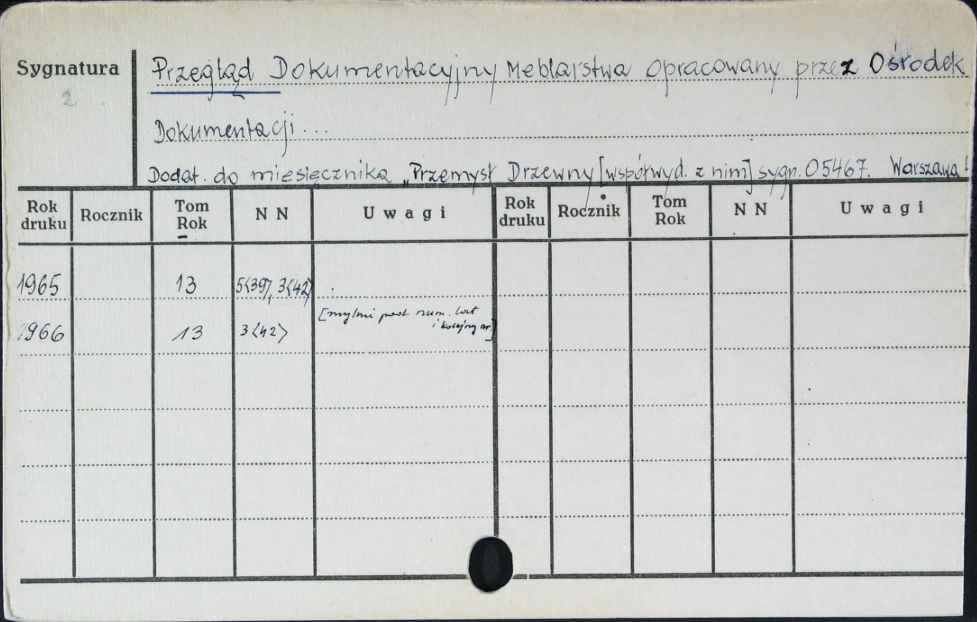 Sygnatura Przegląd Dokumentacyjny Meblarstwa opracowany przez Ośrodek
2
Dokumentacji...
Dodat. do miesięcznika „Przemysł Drzewny [współwyd. z nim] sygn. 05467. Warszawa
Rok druku Rocznik Tom Rok NN Uwagi Rok druku Rocznik Tom Rok NN Uwagi
1965 13 5(39), 3(42)
[mylni
i kolejny nr.]
1966 13 3(42)